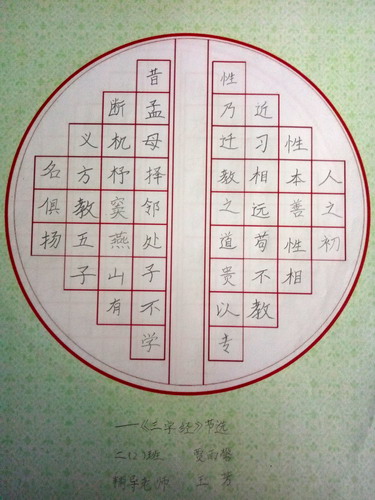 人之初
性本善性相
近习相远苟不教
性乃迁教之道贵以专
昔孟母择邻处子不学
断机杼窦燕山有
义方教五子
名俱扬
—《三字经》节选
二(2)班
辅导老师 王芳